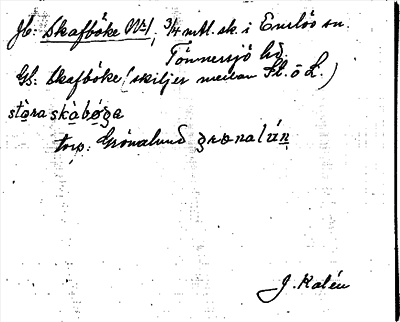 Jb: Skafböke Nr 1, 3/4 mtl. sk. i Enslöv sn.
Tönnersjö hd.
GS: Skafböke (skiljer mellan St. o L.)
stòra skàbøgə
torp: Grönalund grønalún
J. Kalén